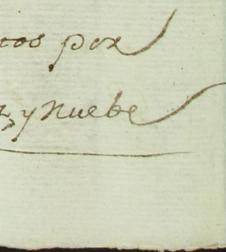 tos por
z y Nuebe